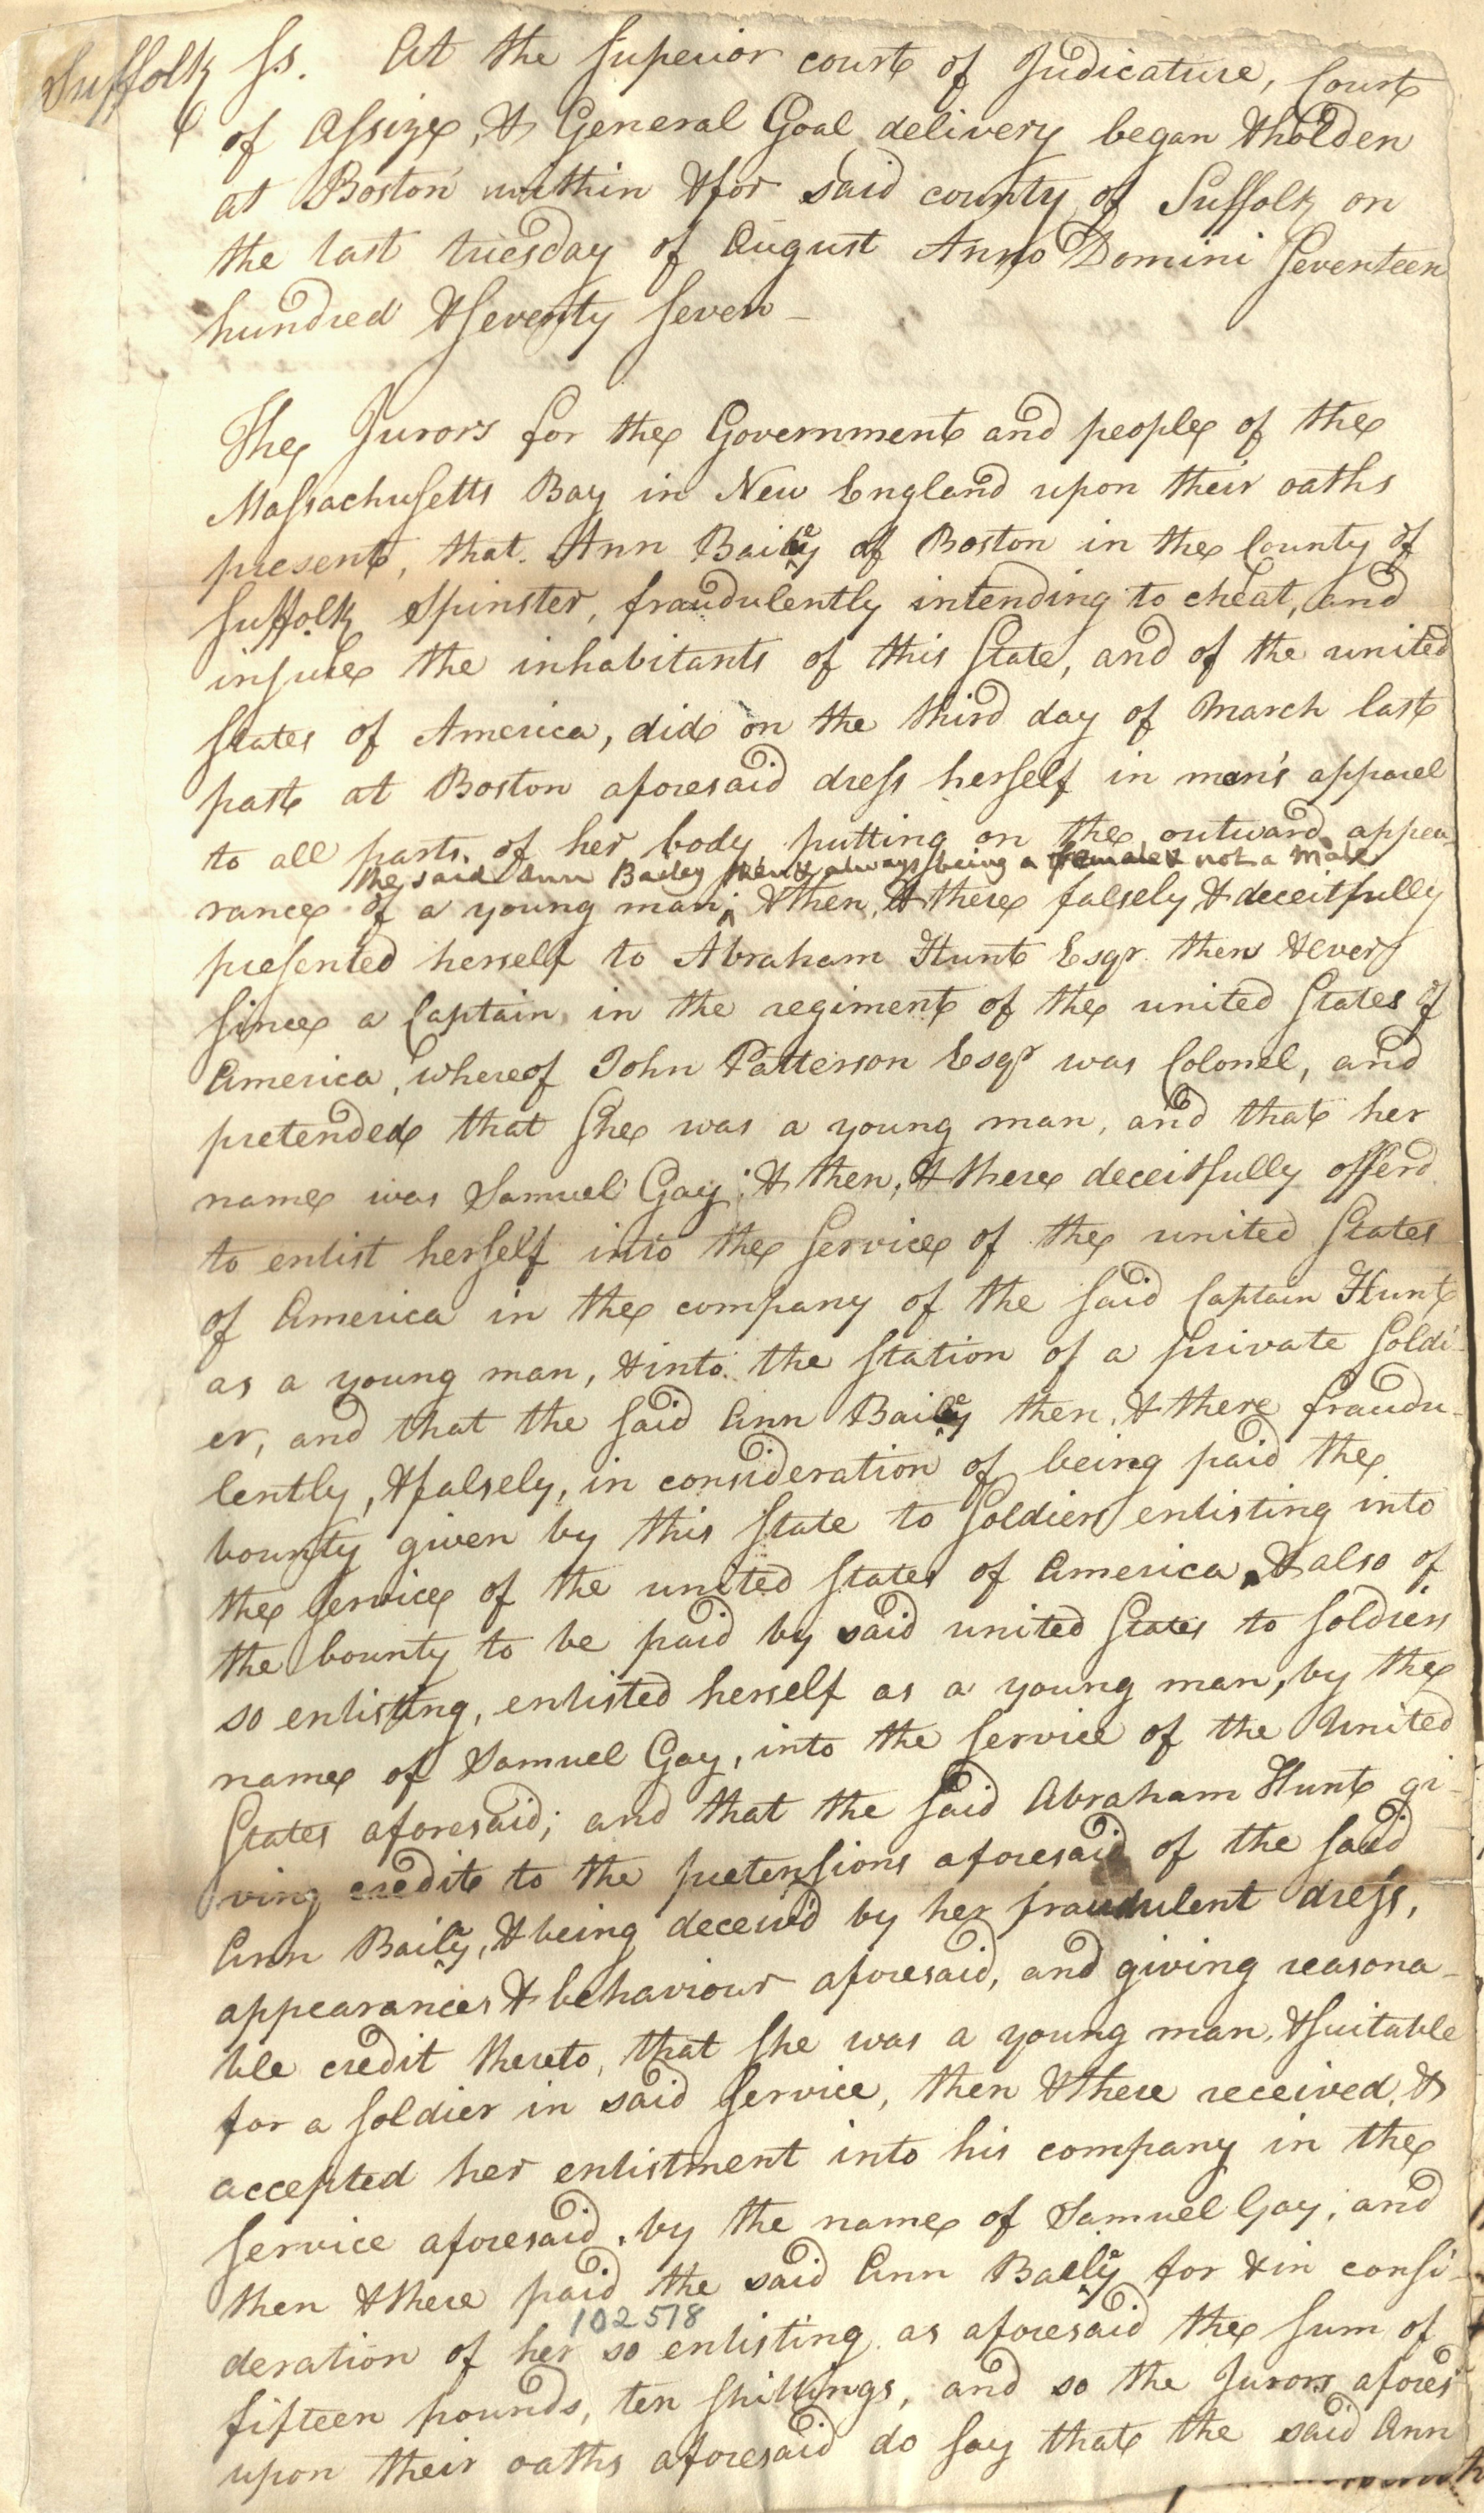 Suffolk ss. At the Superior court of Judicature, Court
of Assize, & General Goal delivery began & holden
at Boston within & for said county of Suffolk on
the last tuesday of August Anno Domini Seventeen
hundred & Seventy Seven –
The Jurors for the Government and people of the
Massachusetts Bay in New England upon their oaths
present, that Ann Bailey of Boston in the County of
Suffolk Spinster, fraudulently intending to cheat, and
injure the inhabitants of this State, and of the united
States of America, did on the third day of March last
past at Boston aforesaid dress herself in men's apparel
to all parts of her body putting on the outward appea-
the said Ann Bailey then & always being a female & not a male
rance of a young man; & then, & there falsely & deceitfully
presented herself to Abraham Hunt Esqr then & ever
since a Captain in the regiment of the united States of
America, whereof John Patterson Esqr was Colonel, and
pretended that she was a young man, and that her
name was Samuel Gay; & then, & there deceitfully offerd
to enlist herself into the service of the united States
of America in the company of the said Captain Hunt
as a young man, & into the station of a private Soldi-
er, and that the said Ann Bailey then, & there fraudu-
lently, & falsely, in consideration of being paid the
bounty given by this State to Soldiers enlisting into
the service of the united States of America, & also of
the bounty to be paid by said united States to Soldiers
so enlisting, enlisted herself as a young man, by the
name of Samuel Gay, into the service of the United
States aforesaid; and that the said Abraham Hunt gi-
ving credit to the pretensions aforesaid of the said
Ann Bailey, & being deceiv'd by her fraudulent dress,
appearances & behaviour aforesaid, and giving reasona-
ble credit thereto, that she was a young man, & suitable
for a soldier in said service, then & there received, &
accepted her enlistment into his company in the
service aforesaid, by the name of Samuel Gay; and
then & there paid the said Ann Bailey for & in consi-
102578
deration of her so enlisting as aforesaid the sum of
fifteen pounds, ten shillings, and so the Jurors afores
upon their oaths aforesaid do say that the said Ann